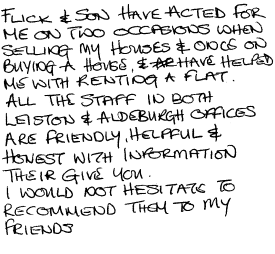 FLICK & SON HAVE ACTED FOR
ME ON TWO OCCASIONS WHEN
SELLING MY HOUSES & ONCE ON
BUYING A HOUSE, & HAVE HELPED
ME WITH RENTING A FLAT.
ALL THE STAFF IN BOTH
LEISTON & ALDEBURGH OFFICES
ARE FRIENDLY, HELPFUL &
HONEST WITH INFORMATION
THEIR GIVE YOU.
I WOULD NOT HESITATE TO
RECOMMEND THEM TO MY
FRIENDS